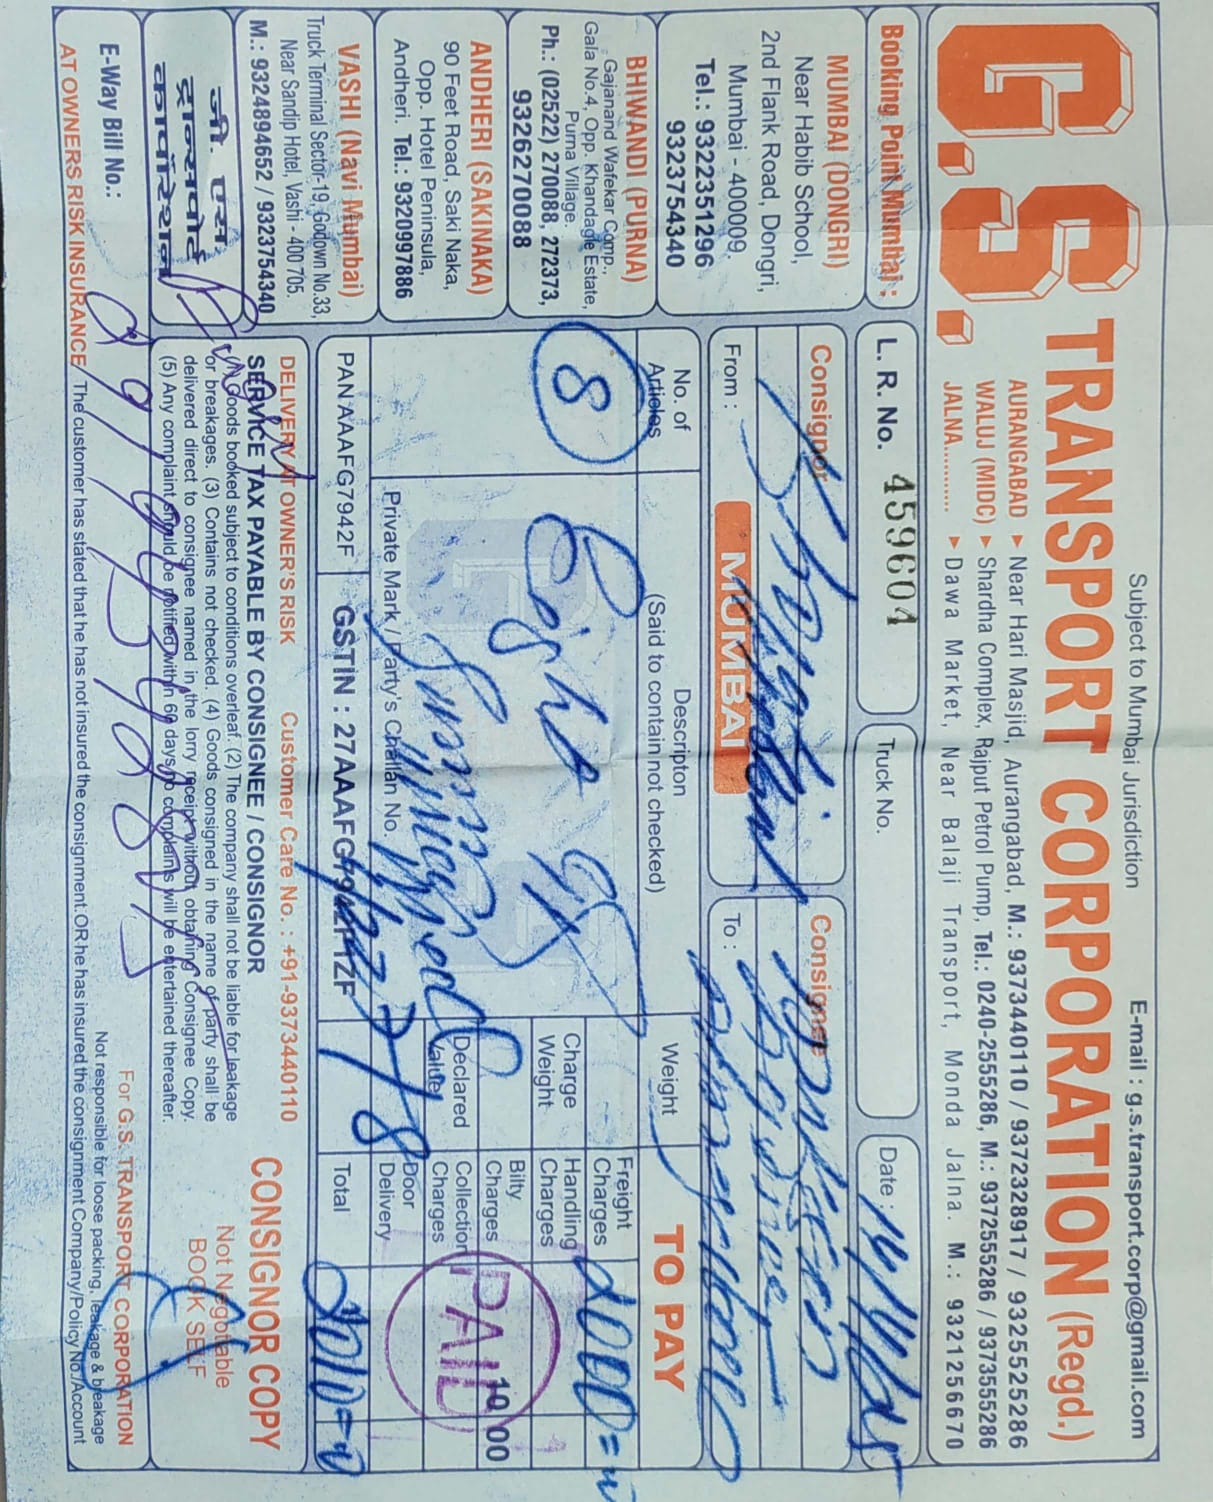 Subject to Mumbai Jurisdiction
E-mail : g.s.transport.corp@gmail.com
G.S. TRANSPORT CORPORATION (Regd.)
AURANGABAD ► Near Hari Masjid, Aurangabad, M.: 9373440110 / 9372328917 / 9325525286
WALUJ (MIDC) ► Shardha Complex, Rajput Petrol Pump, Tel.: 0240-2555286, M.: 9372555286 / 9373555286
JALNA........... ► Dawa Market, Near Balaji Transport, Monda Jalna. M.: 9321256670
Booking Point Mumbai :
L. R. No. 459604
Truck No.
Date : 14/4/25
MUMBAI (DONGRI)
Near Habib School,
2nd Flank Road, Dongri,
Mumbai - 400009.
Tel.: 9322351296
9323754340
BHIWANDI (PURNA)
Gajanand Wafekar Comp.,
Gala No.4, Opp. Khandagle Estate,
Purna Village.
Ph.: (02522) 270088, 272373,
9326270088
ANDHERI (SAKINAKA)
90 Feet Road, Saki Naka,
Opp. Hotel Peninsula,
Andheri. Tel.: 9320997886
VASHI (Navi Mumbai)
Truck Terminal Sector-19, Godown No.33,
Near Sandip Hotel, Vashi - 400 705.
M.: 9324894652 / 9323754340
जी. एस.
ट्रान्सपोर्ट
कार्पोरेशन
Consignor
Consignee
From : MUMBAI
To :
No. of Articles
Descripton
(Said to contain not checked)
Weight
TO PAY
8
Eight
Charge Weight
Declared Value
Freight Charges 2000=00
Handling Charges
Bilty Charges 10 00
Collection Charges
Door Delivery
PAID
Private Mark / Party's Challan No.
PAN AAAFG7942F
GSTIN : 27AAAFG7942F1ZF
Total 2010=00
DELIVERY AT OWNER'S RISK
Customer Care No. : +91-9373440110
SERVICE TAX PAYABLE BY CONSIGNEE / CONSIGNOR
CONSIGNOR COPY
Goods booked subject to conditions overleaf (2) The company shall not be liable for leakage
or breakages. (3) Contains not checked. (4) Goods consigned in the name of party shall be
delivered direct to consignee named in the lorry receipt without obtaining Consignee Copy.
(5) Any complaint should be notified within 60 days no complains will be entertained thereafter.
Not Negotiable
BOOK SELF
For G.S. TRANSPORT CORPORATION
E-Way Bill No.:
Not responsible for loose packing, leakage & breakage
AT OWNERS RISK INSURANCE The customer has stated that he has not insured the consignment OR he has insured the consignment Company/Policy No./Account